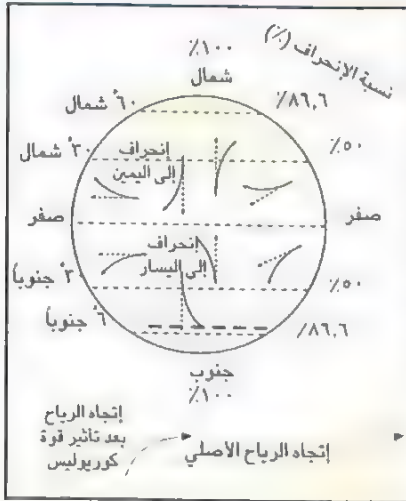 ٪١٠٠
نسبة الإنحراف (٪)
شمال
٦٠ْ شمال
٪٨٦,٦
٣٠ْ شمال
إنحراف
إلى اليمين
٪٥٠
صفر
صفر
إنحراف
إلى اليسار
٣٠ْ جنوباً
٪٥٠
٦٠ْ جنوباً
٪٨٦,٦
جنوب
٪١٠٠
إتجاه الرياح
بعد تأثير قوة
كوريوليس
إتجاه الرياح الأصلي